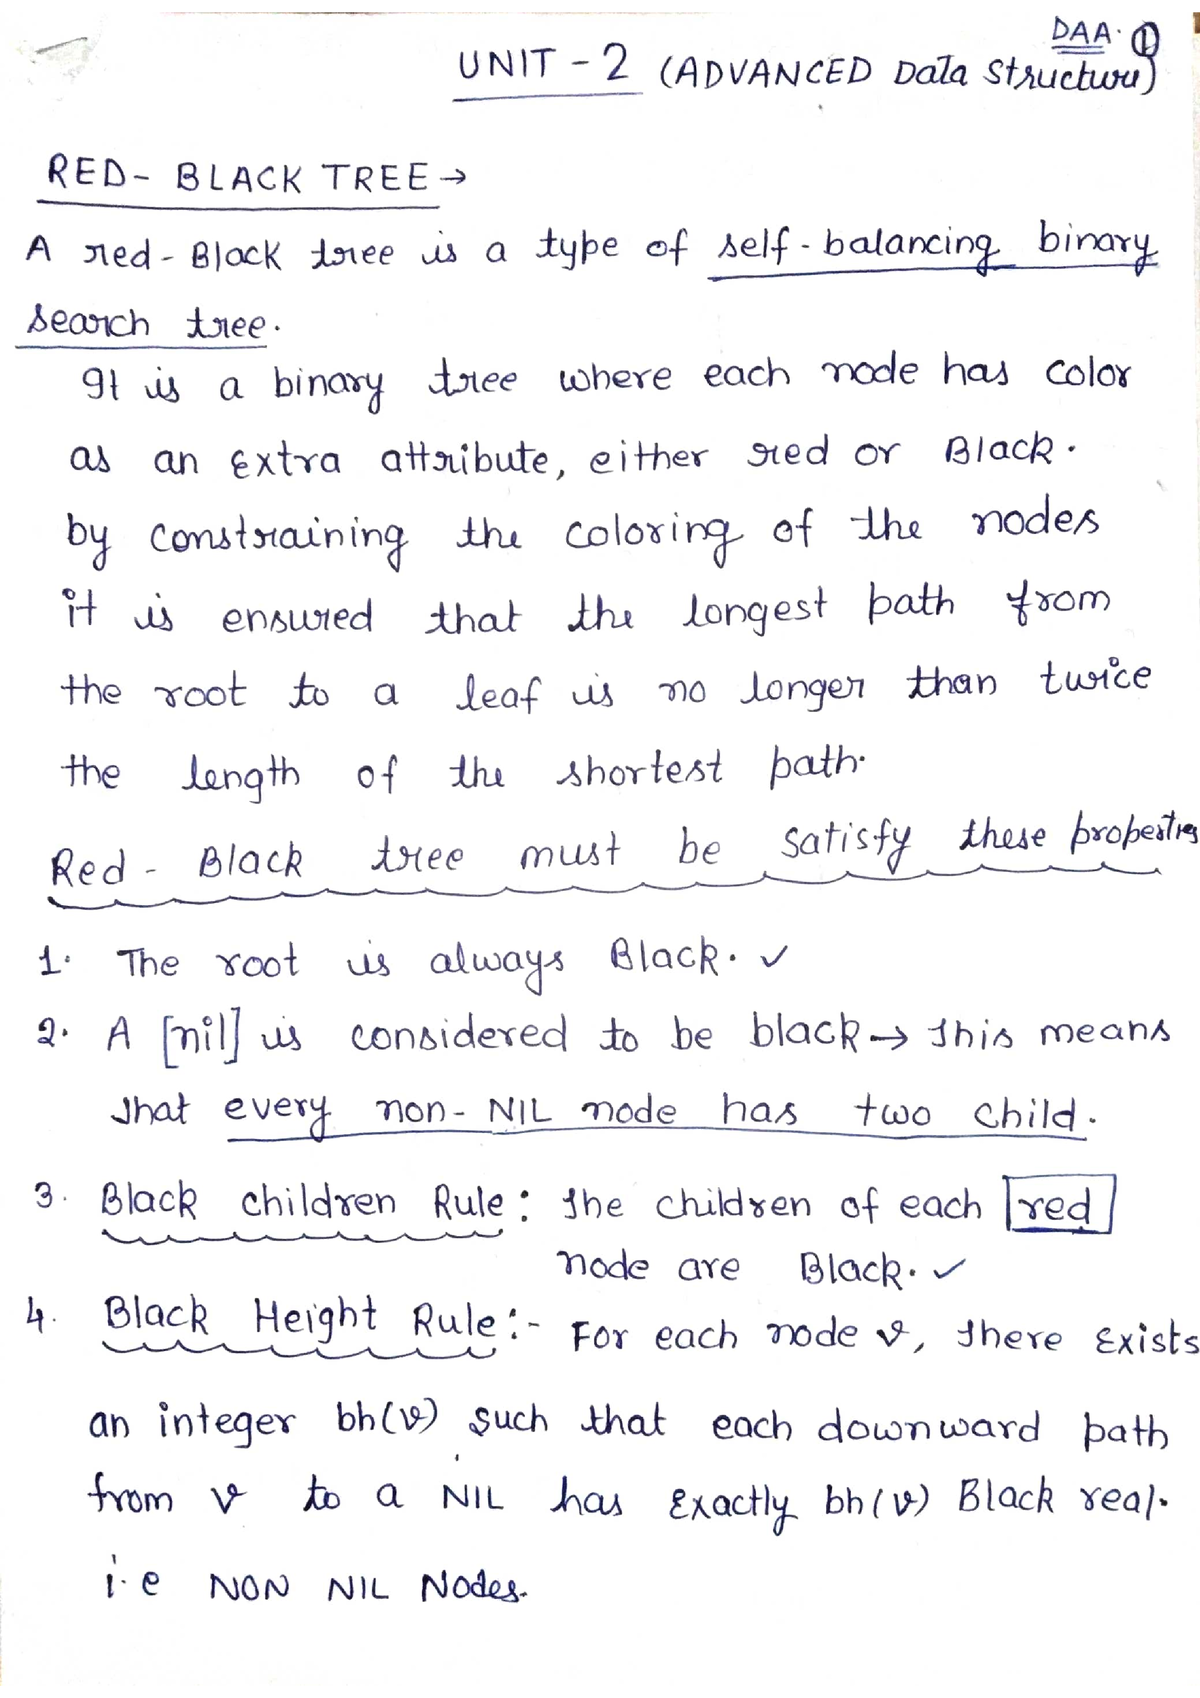 DAA. 1
UNIT - 2 (ADVANCED Data Structure)
RED- BLACK TREE →
A red - Black tree is a type of self - balancing binary
search tree.
It is a binary tree where each node has color
as an extra attribute, either red or Black.
by constraining the coloring of the nodes
it is ensured that the longest path from
the root to a leaf is no longer than twice
the length of the shortest path.
Red - Black tree must be satisfy these properties
1. The root is always Black. ✓
2. A [nil] is considered to be black → This means
that every non- NIL node has two child.
3. Black children Rule : The children of each red
node are Black. ✓
4. Black Height Rule :- For each node v, there Exists
an integer bh(v) such that each downward path
from v to a NIL has Exactly bh(v) Black real.
i.e NON NIL Nodes.